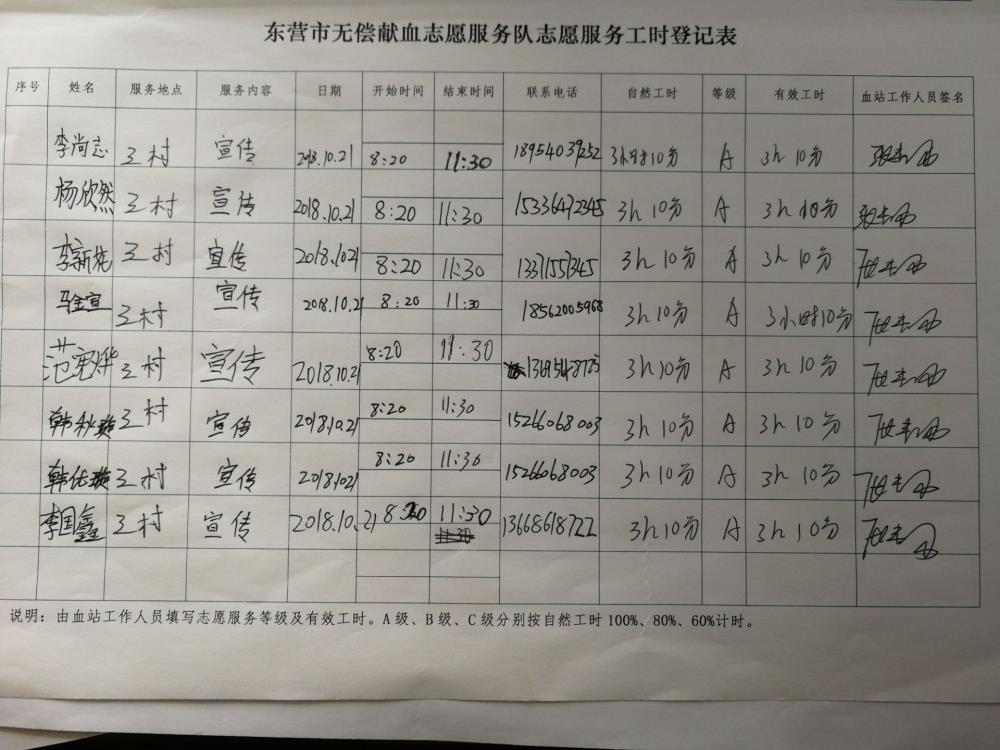 东营市无偿献血志愿服务队志愿服务工时登记表
序号 姓名 服务地点 服务内容 日期 开始时间 结束时间 联系电话 自然工时 等级 有效工时 血站工作人员签名
李尚志 王村 宣传 2018.10.21 8:20 11:30 18954039252 3小时10分 A 3h10分
杨欣然 王村 宣传 2018.10.21 8:20 11:30 15336472345 3h10分 A 3h10分
王村 宣传 2018.1021 8:20 11:30 13371557345 3h10分 A 3h10分
马金宣 王村 宣传 2018.10.21 8:20 11:30 18562005968 3h10分 A 3小时10分
范宪烨 王村 宣传 2018.10.21 8:20 11:30 3h10分 A 3h10分
韩秋璇 王村 宣传 2018.10.21 8:20 11:30 15266068003 3h10分 A 3h10分
韩依璇 王村 宣传 2018.1021 8:20 11:30 15266068003 3h10分 A 3h10分
李国鑫 王村 宣传 2018.10.21 8:20 11:30 13668618722 3h10分 A 3h10分
11:30
说明：由血站工作人员填写志愿服务等级及有效工时。A级、B级、C级分别按自然工时100%、80%、60%计时。